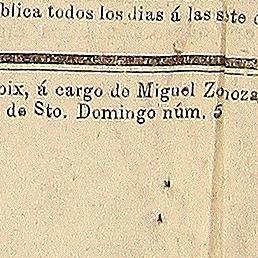 blica todos los dias á las siete
oix, á cargo de Miguel Zonoza
de Sto. Domingo núm. 5